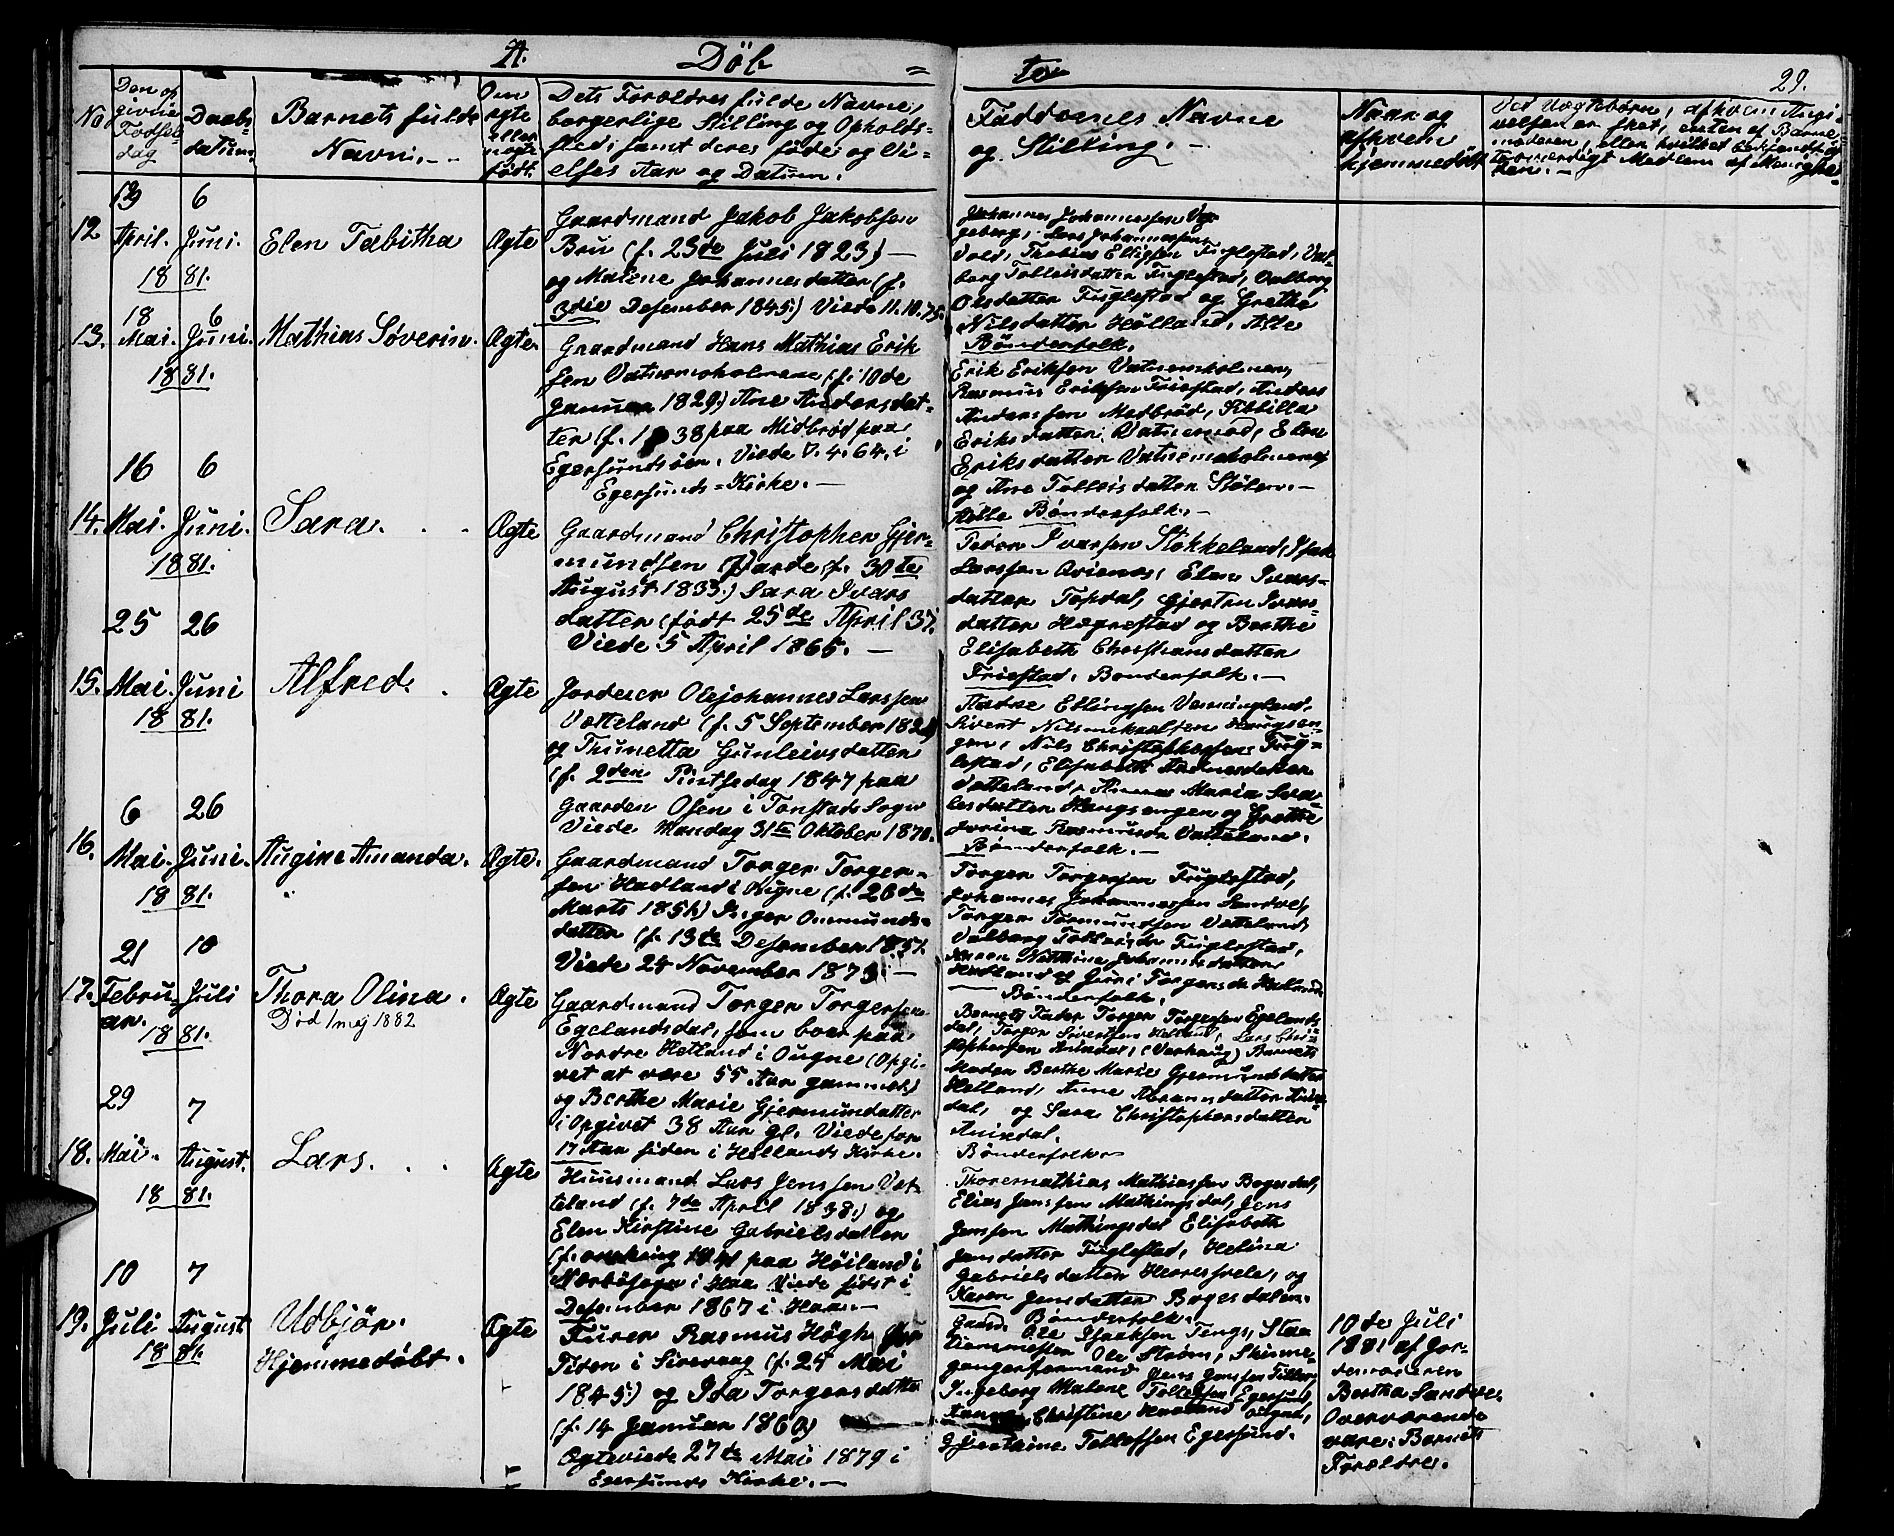 A. Döb = te 29.
No
Den op
givne
Fødsels
dag
Daabs-
datum.
Barnets fulde
Navn. -
Om
ægte
eller
uægte
født.
Dets Forældres fulde Navne,
borgerlige Stilling og Opholds-
sted, samt deres føde og Vi-
elses Aar og Datum.
Faddernes Navne
og Stilling. -
Naar og
af hvem
hjemmedøbt
Ved Uægtebørn, af hvem Angi-
velsen er sket, enten af Barne
moderen, eller hvilket
troværdigt Medlem af Menighe-
den. -
12
19 April. 1881.
6 Juni.
Elen Tabitha
Ægte
Gaardmand Jakob Jakobsen
Bru (f. 23de Juli 1823) -
og Malene Johannesdatter (f.
3die Desember 1845.) Viede 11.10.75.
Johannes Johannessen
geberg, Lars Johannessen
Vold, Thobias Elligsen Fuglestad, Val-
borg Tolleisdatter Fuglestad, Valborg
Olsdatter Fuglestad og Grethe
Nilsdatter Hølland. Alle
Bønderfolk.
13.
18 Mai. 1881.
6 Juni.
Mathias Søverin.
Ægte.
Gaardmand Hans Mathias Erik
sen Vatnemsholmene (f. 10de
Januar 1829.) Ane Andersdat-
ter (f. 1838 paa Midbrød paa
Egersundsøen. Viede 7. 4. 64. i
Egersunds=Kirke. -
Erik Eriksen Vatnemholmen,
Rasmus Eriksen Friestad, Anders
Anderssen Medbrød, Sibbilla
Eriksdatter Vatnemod, Elen
Eriksdatter Vatnemsholmene,
og Ane Tolleisdatter Stølen. -
Alle Bønderfolk. -
14.
16 Mai. 1881.
6 Juni.
Sara. . .
Ægte
Gaardmand Christopher Gjer-
mundsen Varde (f. 30te
August 1833.) Sara Ivars
datter (født 25de April 37.
Viede 5 April 1865. -
Peder Ivarsen Stokkeland, Isak
Larssen Orienes, Elen Ivars-
datter Topdal, Gjertru Ivars-
datter Hægrestad og Berthe
Elisabeth Christiansdatter
Friestad. Bønderfolk. -
15.
25 Mai. 1881.
26 Juni
Alfred. .
Ægte
Jordeier Olejohannes Larssen
Vatteland (f. 5 September 182
og Thunetta Gunleivsdatter
(f. 2den Pintsedag 1847 paa
Gaarden Osen i Tonstads Sogn
Viede Mandag 31te Oktober 1870.
Andre Ellingsen
Sivert Nilsmikaelsen Haugsen-
gen, Nils Christophersen Fug-
lestad, Elisabeth Andreasdatter
Vatteland, Anna Maria
lesdatter Haugsengen og Grethe
Jorina Rasmusdr Vatteland.
Bønderfolk. -
16.
6 Mai. 1881.
26 Juni.
Augine Amanda.
Ægte.
Gaardmand Torger Torger-
sen Hadland i Ougne (f. 26de
Marts 1851.) Inger Ommunds-
datter (f. 13de Desember 1851.
Viede 24 November 1873. -
Torger Torgersen Fuglestad,
Johannes Johannessen Sandve,
Torger Tormundsen Vatteland,
Valborg Tolleisdr Fuglestad,
Karen Mathine Johannesdatter
Hadland og Guri Torgersdr Hadland.
Bønderfolk.
17.
21 Februar. 1881.
10 Juli
Thora Olina.
Død 1 mej 1882
Ægte
Gaardmand Torger Torgersen
Egelandsdal, som boer paa
Nordre Hetland i Ougne (Opgi-
vet at være 55 Aar gammel)
og Berthe Marie Gjermundatter
i Opgivet 38 Aar gl. Viede for
17 Aar siden i Hellands Kirke.
Barnets Fader Torger Torgersen Egelands
dal, Torger Sivertsen Helland, Lars Chri-
stophersen Anisdal, (Varhaug) Barnets
Moder Berthe Marie Gjermundsdatter
Helland, Anne Abramsdatter Anis-
dal, og Sara Christophersdatter
Anisdal.
Bønderfolk
18.
29 Mai. 1881.
7 August.
Lars. . .
Ægte
Huusmand Lars Jenssen Vat-
teland (f. 7de April 1838.) og
Elen Kirstine Gabrielsdatter
(f. omkring 1841 paa Høiland i
Nærbøsogn i Haa Viede sidst i
Desember 1867 i Haa. -
Thoremathias Mathiassen Bogesdal,
Elias Janssen Mathingsdal, Jens
Janssen Mathingsdal Elisabeth
Jansdatter Fuglestad, Helina
Gabrielsdatter Herresvele, og
Karen Jensdatter Bogesdalen.
Bønderfolk.
19.
10 Juli 1881.
7 August
Udbjør.
Hjemmedøbt.
Ægte
Furer Rasmus Høgh
Tiden i Sirevaag (f. 25 Mai
1845.) og Ida Torgersdatter
(f. 14 Januar 1860)
Ægteviede 27de Mai 1879 i
Egersunds Kirke. -
Gaard. Ole Isaksen Tengs, Sta
tionsmester Ole Strøm, Skinne-
gangerformand Jens Jonssen
Ingeborg Malene Tollefsen Egersund,
Christine Haaland Ougne,
Tollefsen Egersund.
10de Juli
1881 af Jor-
demoderen
Bertha Sandve.
Overværende
vare: Barnets
Forældre.